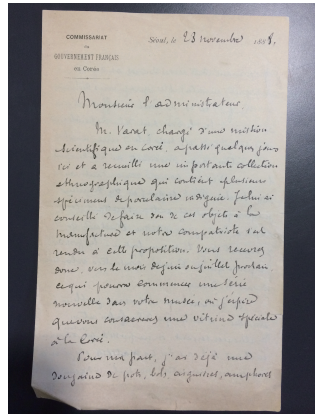 COMMISSARIAT
DU
GOUVERNEMENT FRANÇAIS
en Corée
Séoul, le 23 novembre 1888.
Monsieur l'administrateur
M. Varat, chargé d'une mission
scientifique en Corée, a passé quelques jours
ici et a recueilli une importante collection
ethnographique qui contient plusieurs
spécimens de porcelaine indigène. Je lui ai
conseillé de faire don de ces objets à la
manufacture et notre compatriote s'est
rendu à cette proposition. Vous recevrez
donc, vers le mois de juin ou juillet prochain,
ce qui pourra commencer une série
nouvelle dans votre musée, où j'espère
que vous consacrerez une vitrine spéciale
à la Corée.
Pour ma part, j'ai déjà une
douzaine de pots, bols, aiguières, amphores